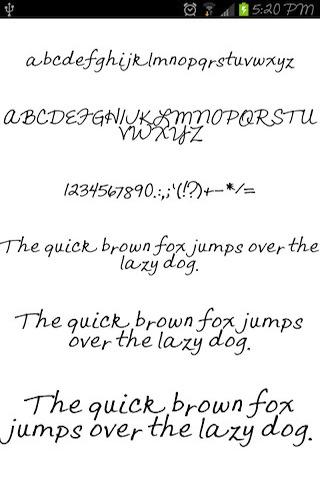 5:20 PM
abcdefghijklmnopqrstuvwxyz
ABCDEFGHIJKLMNOPQRSTU
VWXYZ
1234567890.:,;'(!?)+-*/=
The quick brown fox jumps over the
lazy dog.
The quick brown fox jumps
over the lazy dog.
The quick brown fox
jumps over the lazy dog.